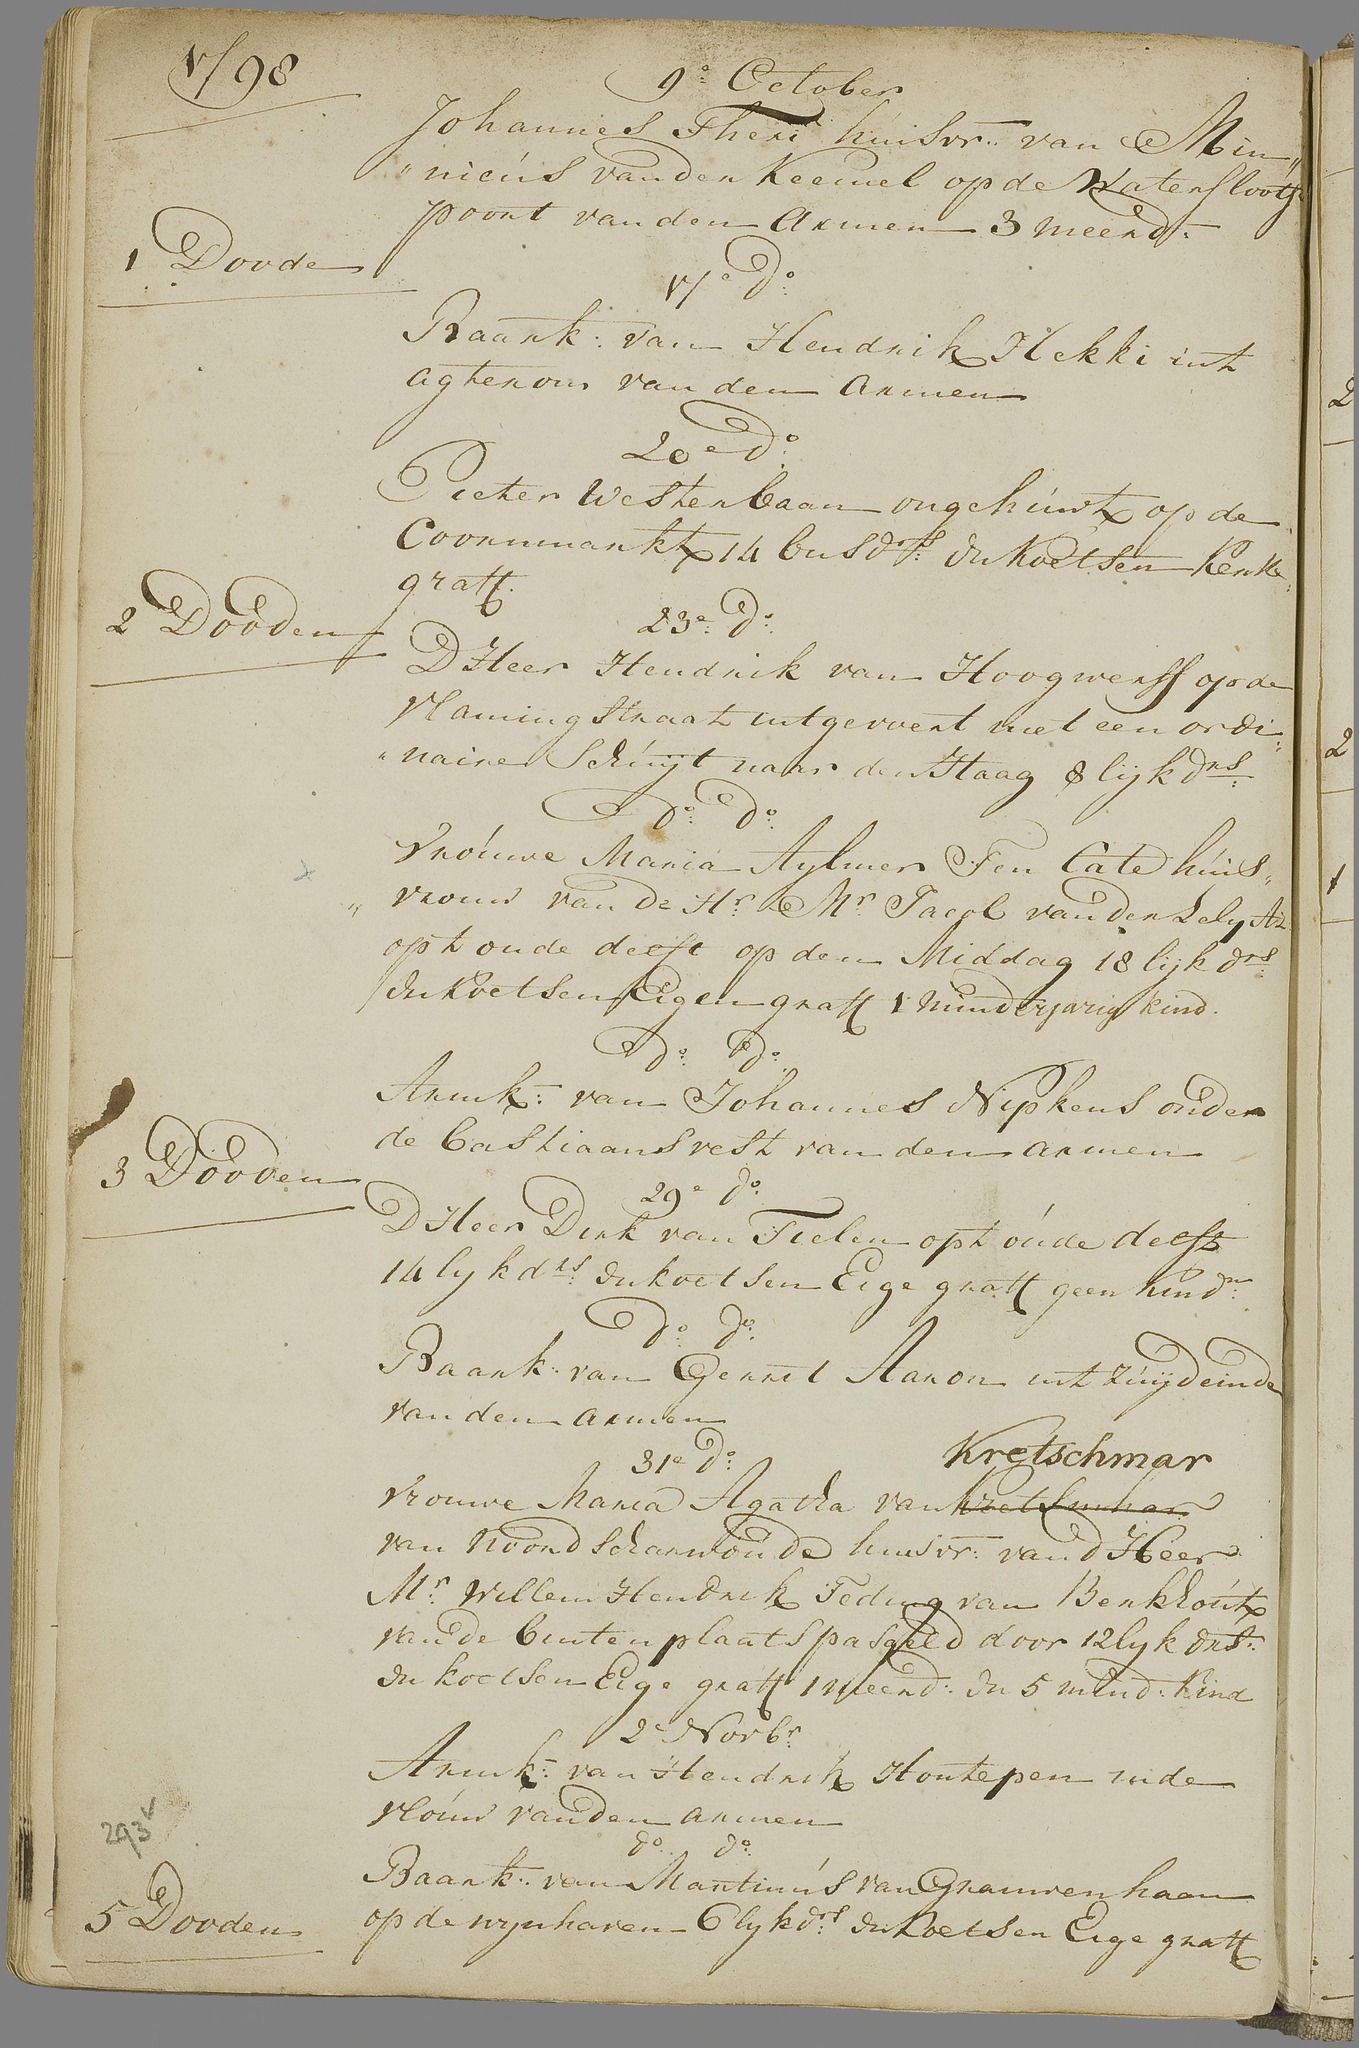 1798
9e October
Johannes Theri huisvr: van Min„
„nicus van den Keemel op de Watersloots
poort van den Armen 3 meerd:
1 Doode
17e do:
Baark: van Hendrik Hekki int
agterom van den armen
20e do:
Pieter Westerbaan ongehuwt op de
Coornmarkt 14 busdrs: en koetsen Kerke
graft.
2 Dooden
23e: do:
D Heer Hendrik van Hoogwerff op de
vlamingstraat uitgevoert met een ordi„
„naire Schuyt naar den Haag 8 lijkdrs:
do: do:
Vrouwe Maria Aylmer Ten Cate huis„
„vrouw van de Hr. Mr. Jacob van der Lely Az
opt oude delft op den Middag 18 lijkdrs:
en koetsen Eigen graft 1 minderjarig kind.
do: do:
Armk: van Johannes Nipkens onder
de bastiaans vest van den armen
3 Dooden
29e do:
D Heer Dirk van Tielen opt oude delft
14 lykdrs: en koetsen Eige graft geen kindn:
do: do:
Baark: van Gerrit Aaron int Zuijdeinde
van den armen
31e do:
Kretschmar
Vrouwe Maria Agatha van
van Noordscharwoude huisvr: van d Heer
Mr. Willem Hendrik Teding van Berkhout
van de buitenplaats pasgeld door 12 lykdrs:
en koetsen Eige graft 1 meerd: en 5 mind: kind
2e Novbr
Armk: van Hendrik Houtepen inde
vlouw van den armen
do: do:
Baark: van Martinus van Grauwenhaan
op de wynhaven 6 lykdrs: en koetsen Eige graft
293v
5 Dooden
2
2
1